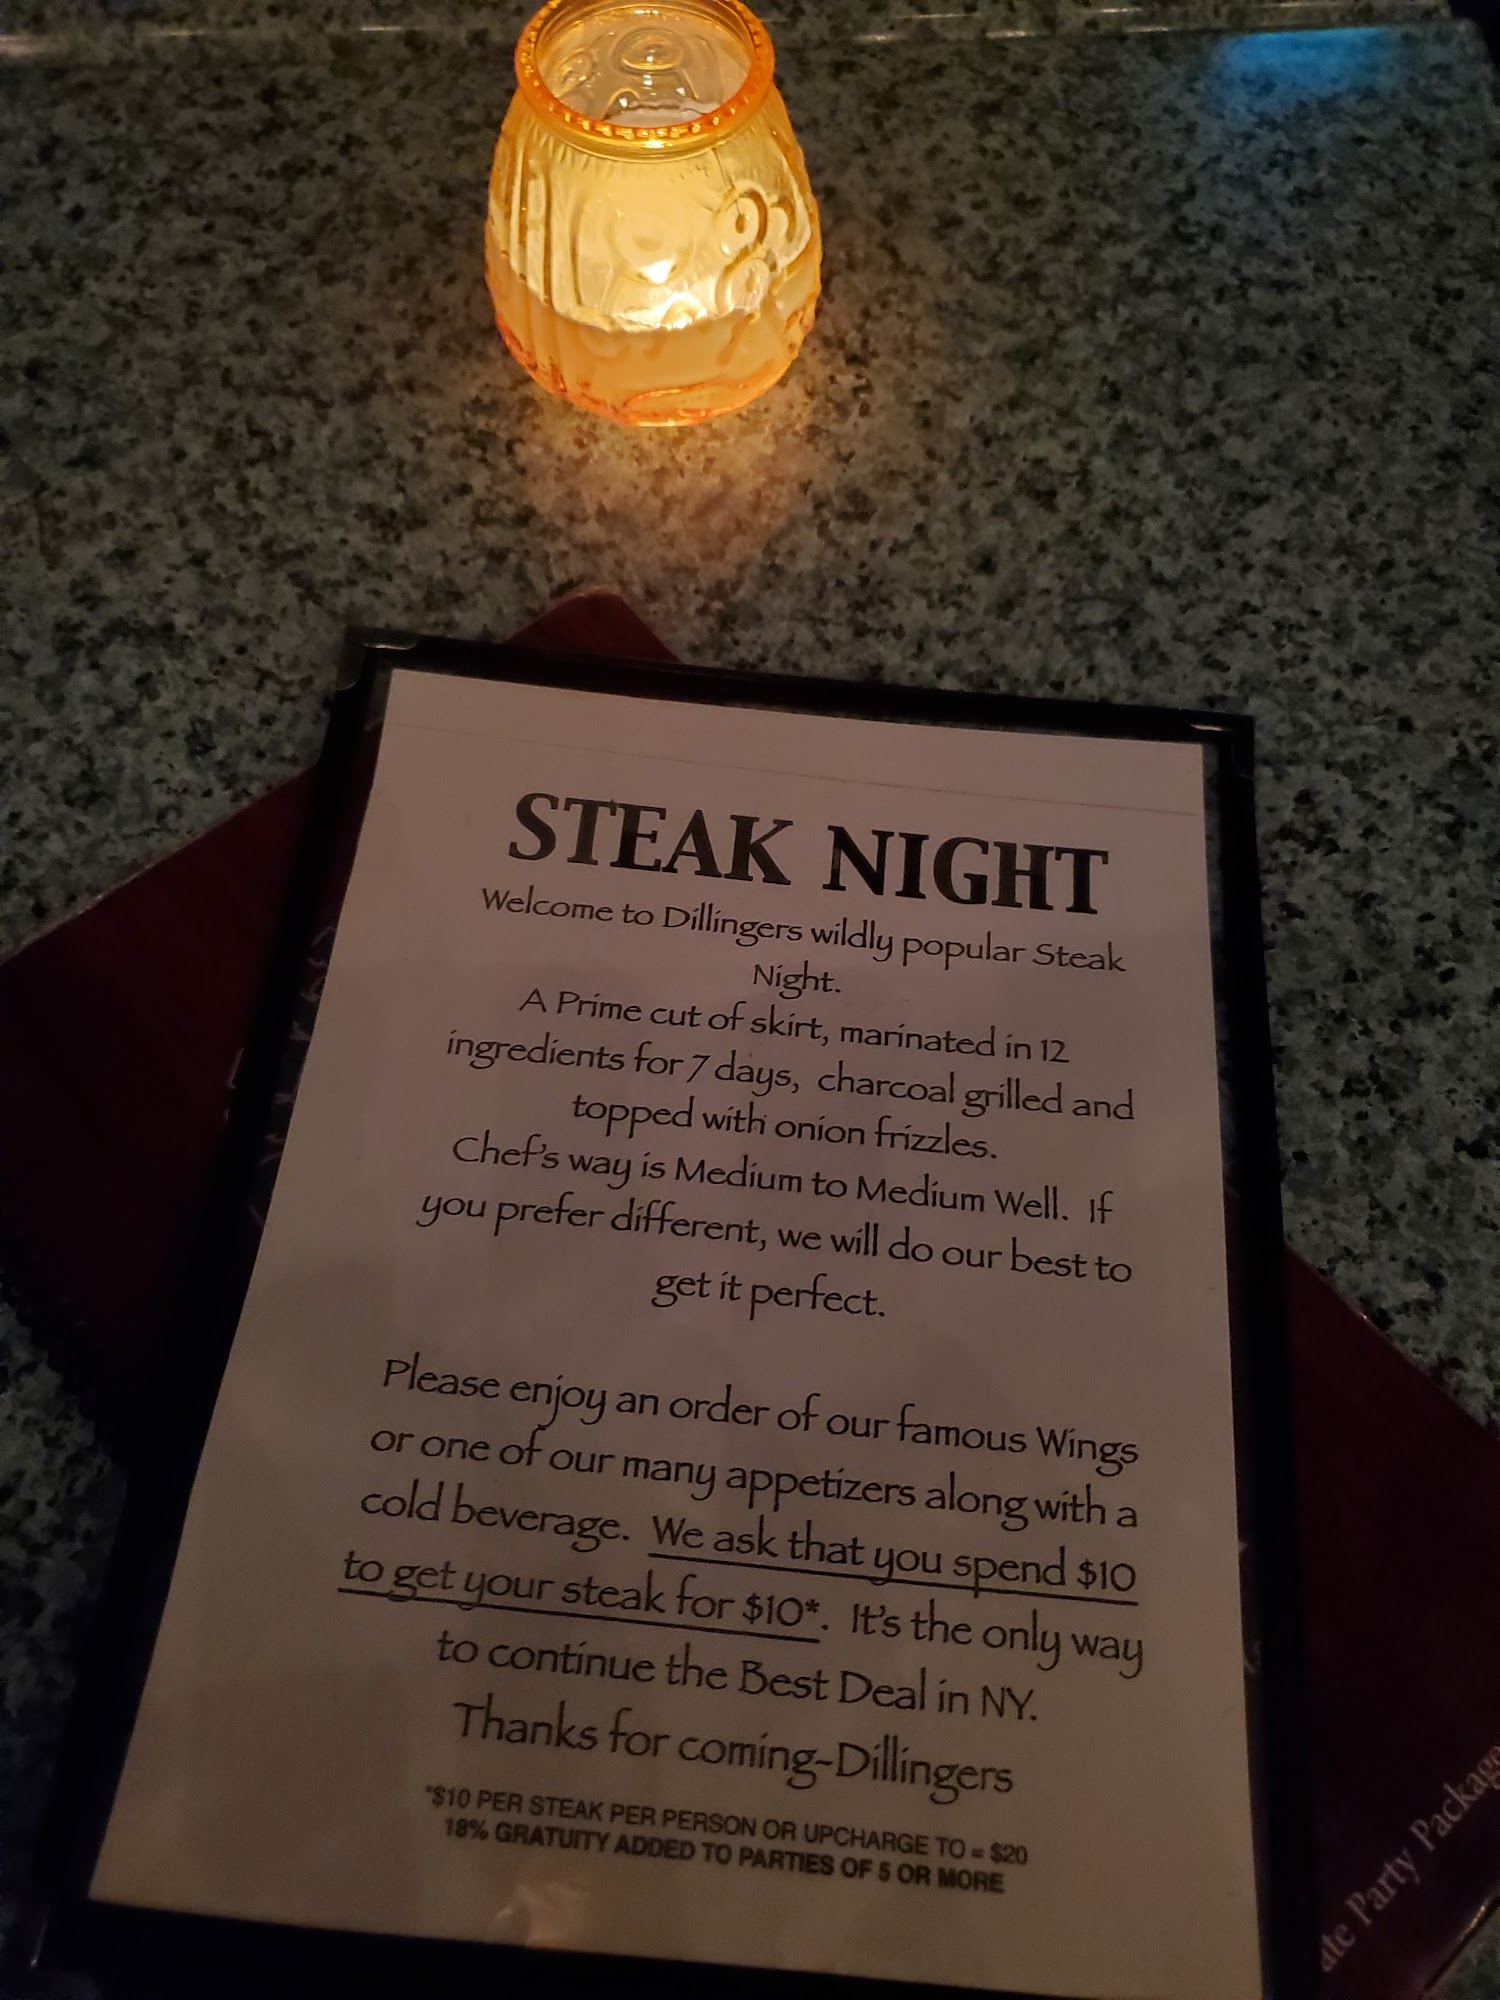 STEAK NIGHT
Welcome to Dillingers wildly popular Steak
Night.
A Prime cut of skirt, marinated in 12
ingredients for 7 days, charcoal grilled and
topped with onion frizzles.
Chef's way is Medium to Medium Well. If
you prefer different, we will do our best to
get it perfect.
Please enjoy an order of our famous Wings
or one of our many appetizers along with a
cold beverage. We ask that you spend $10
to get your steak for $10*. It's the only way
to continue the Best Deal in NY.
Thanks for coming-Dillingers
*$10 PER STEAK PER PERSON OR UPCHARGE TO = $20
18% GRATUITY ADDED TO PARTIES OF 5 OR MORE
Party